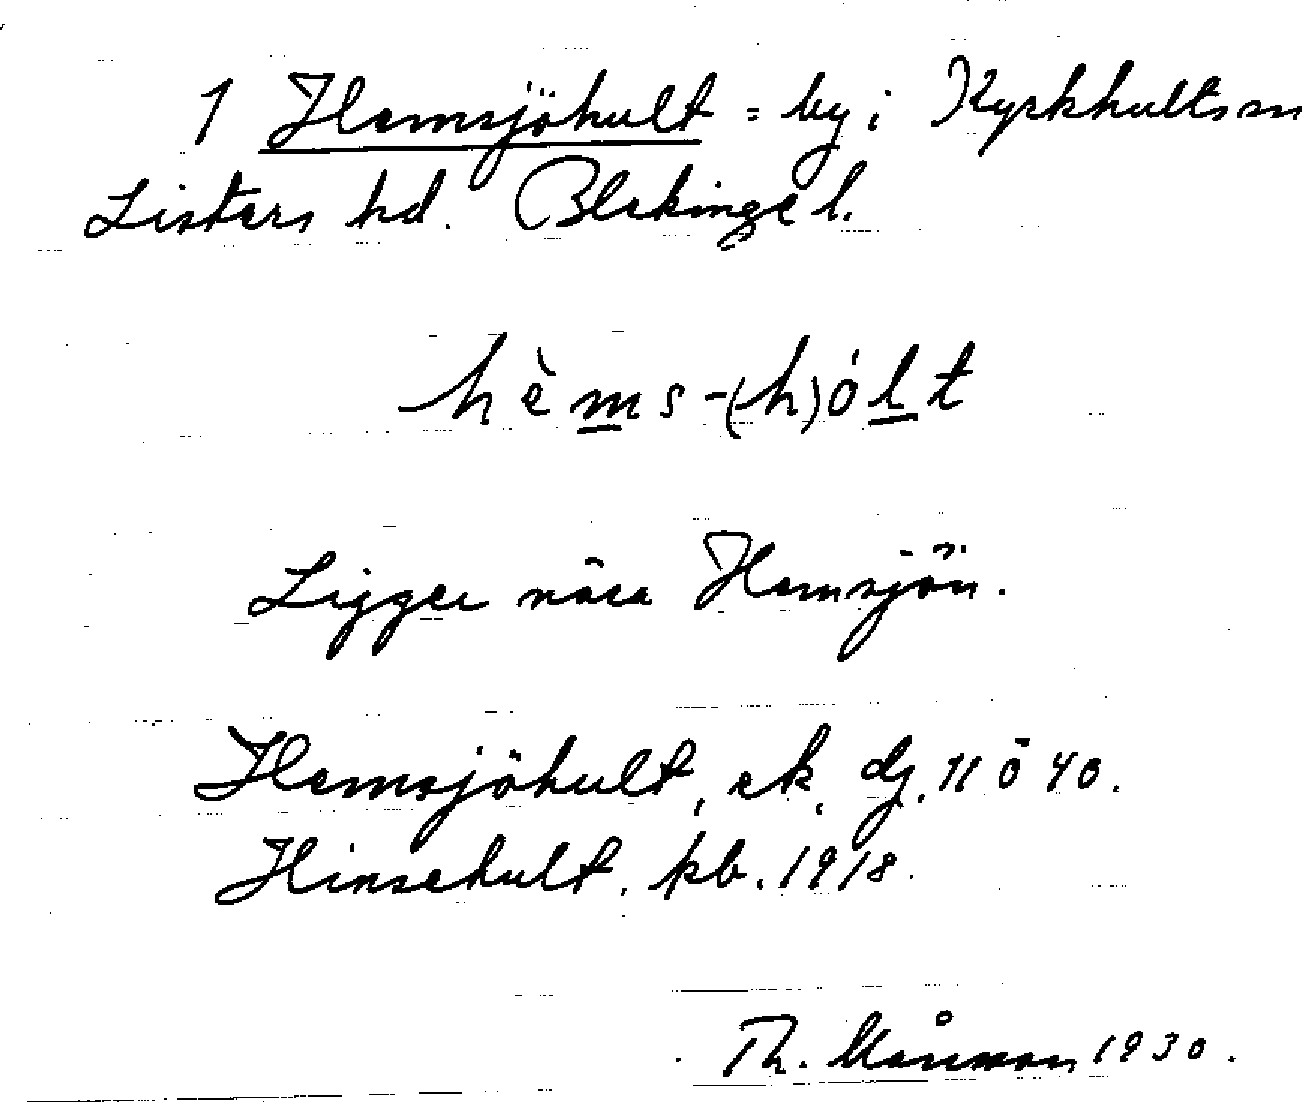 1 Hemsjöhult = by i Kyrkhults sn
Listers hd. Blekinge l.
hèms-(h)ólt
Ligger nära Hemsjön.
Hemsjöhult, ek. dj. 11 ö 40.
Hinsehult. kb. 1918.
Th. Månsson 1930.